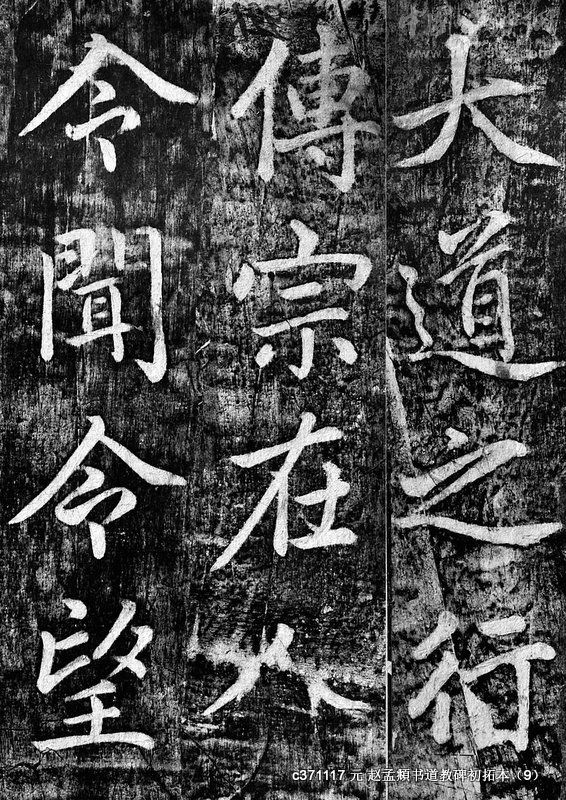 大道之行
傳宗在人
令聞令望
c371117 元 赵孟頫书道教碑初拓本（9）